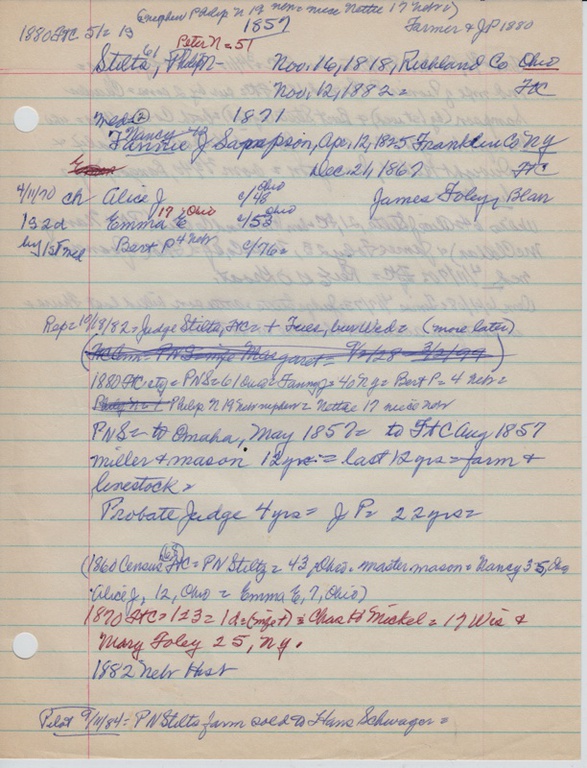 (nephew Philip N 19 nebr= niece Nettie 17 Nebr)
1880 FtC 51= 13 1857 Farmer & JP 1880
61 Peter N = 51
Stilts, Philip N- Nov. 16, 1818, Richland Co Ohio
Nov. 12, 1882 = FtC
med ② 1871
Nancy 42
Fannie J Sampson, Apr. 12, 1825 Franklin Co NY
Dec. 21, 1867 FtC
4/11/70 ch Alice J c/48 Ohio James Foley, Blair
1 & 2d Emma E 17 Ohio c/53 Ohio
by 1st med Bert P 4 Nebr c/76=
Rep= 10/19/82= Judge Stilts, FtC= + Tues, bur Wed= (more later)
(FtC Cem= PN= Margaret= 9/2/28 - 3/2/99)
1880 FtC cty= PNS= 61 Oua= Fanny J= 40 Ny= Bert P= 4 Nebr=
Philip N 19 Nebr nephew= Nettie 17 niece Nebr
PNS= to Omaha, May 1857= to FtC Aug 1857
miller & mason 12 yrs= last 12 yrs= farm &
livestock=
Probate Judge 4 yrs= J P= 22 yrs=
(1860 Census FtC= PN Stiltz= 43, Ohio= master mason= Nancy 35, Oh
Alice J, 12, Ohio= Emma E, 7, Ohio)
1870 FtC= 123= 1d= = Chas H Mickel= 17 Wis &
Mary Foley 25, Ny.
1882 Nebr Hist
Pilot 9/11/84= PN Stilts farm sold to Hans Schwager=